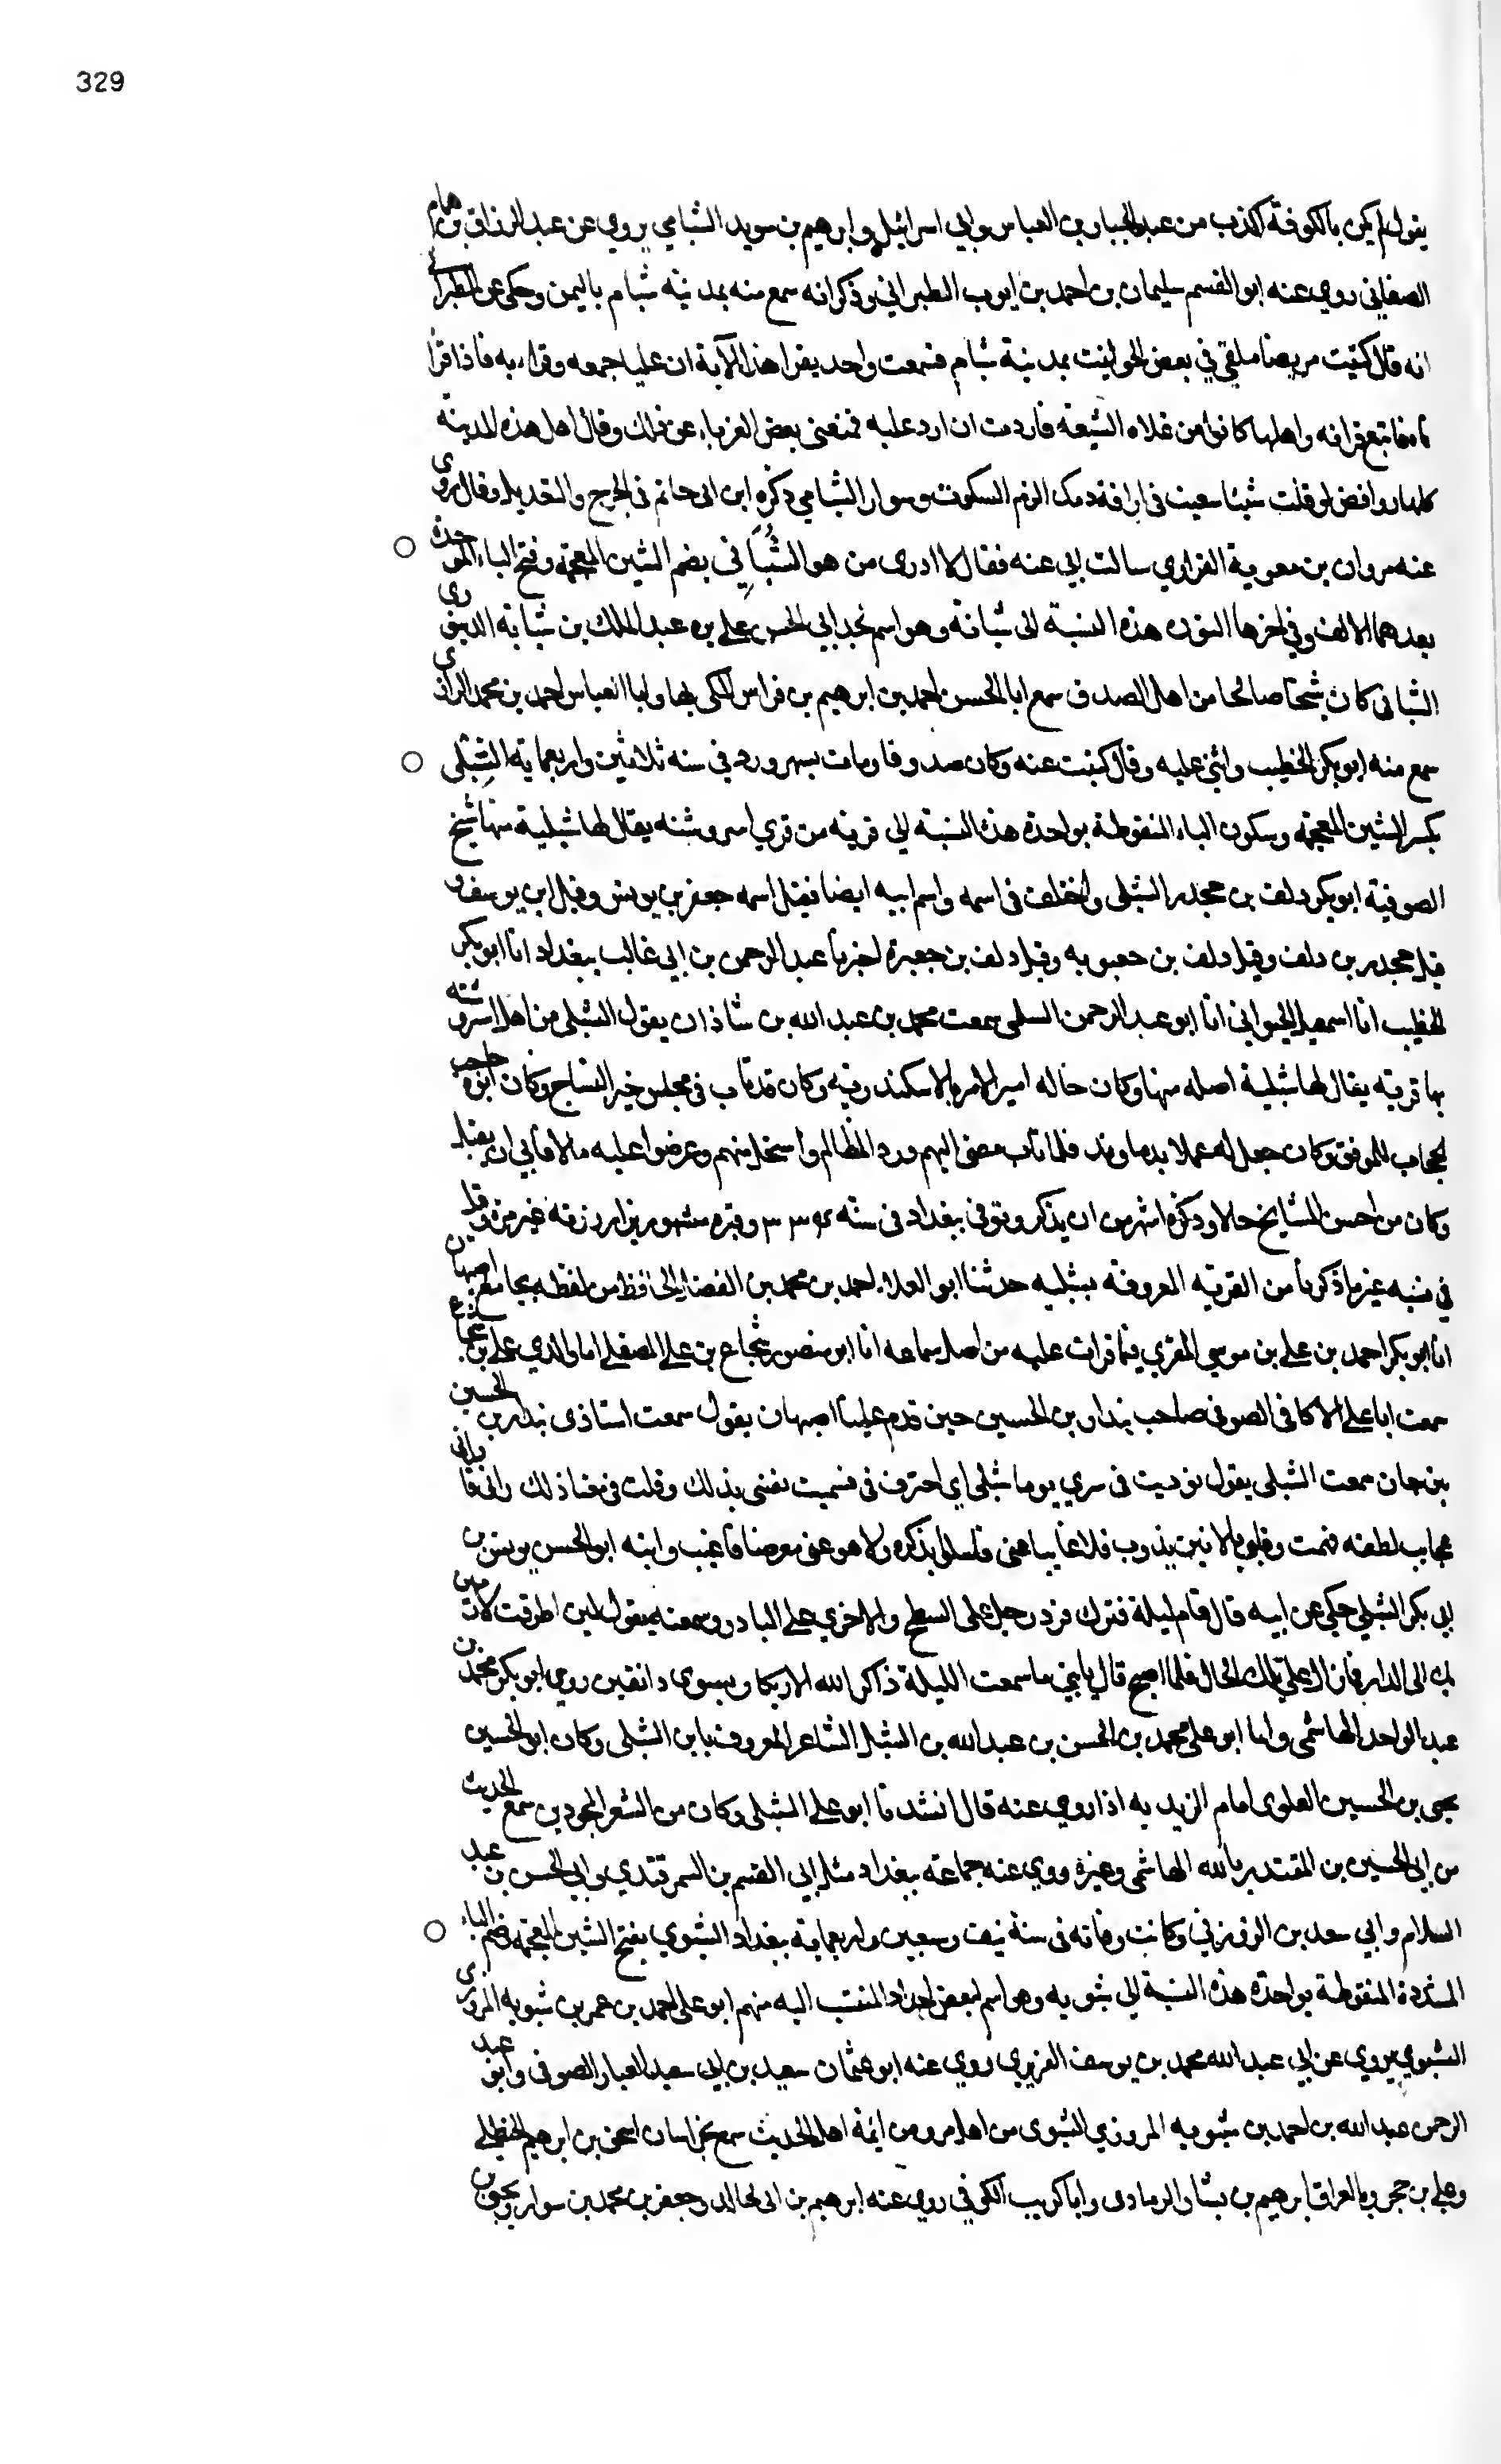 329
يقول لم يكن بالكوفة اكذب من عبد الجبار بن العباس وابي اسرائيل وابرهيم بن سويد الشبامي يروي عن عبد الرزاق بن همام
الصغاني روي عنه ابو القسم سليمان بن احمد بن ايوب الطبراني وذكر انه سمع منه بمدينة شبام باليمن وحكي عن الطبراني
انه قال كنت مريضا ملقي في بعض الحوانيت بمدينة شبام فسمعت واحد يقرا هذا الآية ان عليا جمعه وقراءبه فاذا قرا
ناه فاتبع قرانه واهلها كانوا من غلاه الشيعة فاردت ان ارد عليه فمنعني بعض الغرباء عن ذلك وقال اهل هذه المدينة
كلها روافض لو قلت شيئا سعيت في اراقة دمك الزم السكوت وسوار الشبامي ذكره ابن ابى حاتم في الجرح والتعديل وقال روى
عنه مروان بن معوية الفزاري سالت ابي عنه فقال لا ادرى من هو الشُبَاني بضم الشين المعجمة وفتح الباء الموحدة
بعدهما الالف وفي اخرها النون هذه النسبة الى شبانة وهو اسم لجد ابي الحسن علي بن عبد الملك بن شبانة الدينوري
الشبانى كان شيخا صالحا من اهل الصدق سمع ابا الحسن احمد بن ابرهيم بن فراس المكى بها وابا العباس احمد بن محمد الرازى
سمع منه ابو بكر الخطيب واثنى عليه وقال كتبت عنه وكان صدوقا ومات بسهرورد في سنه ثلاثين واربعماية الشِبْلى
بكسر الشين المعجمة وسكون الباء المنقوطة بواحدة هذه النسبة الي قرية من قري اسروشنه يقال لها شبلية منها شيخ
الصوفية ابو بكر دلف بن جحدر الشبلى واختلف في اسمه واسم ابيه ايضا فقيل اسمه جعفر بن يونس وقيل ابن يوسف و
قيل جحدر بن دلف وقيل دلف بن جعبويه وقيل دلف بن جعبرة اخبرنا عبد الرحمن بن ابي غالب ببغداد انا ابو بكر
الخطيب انا اسمعيل الحيرانى انا ابو عبد الرحمن السلمى سمعت محمد بن عبد الله بن شاذان يقول الشبلى من اهل اسروشنه
بها قرية يقال لها شبلية اصله منها وكان خاله امير الامراء بالاسكندرية وكان قد تاب في مجلس خير النساج وكان ابوه حاجب
الحجاب للموفق وكان جعل له عملا بدماوند فلما تاب مضى اليهم ورد المظالم واستحل منهم وعرضوا عليه مالا فابى ان يقبله
وكان من احسن المشايخ حالا وذكره اشهر من ان يذكر وتوفي ببغداد في سنه ٣٣٤ وقبره مشهور يزار زرته غير مرة وقيل
في نسبه غير ما ذكرنا من القرية المعروفة بشبليه حدثنا ابو العلاء احمد بن محمد بن الفضل الحافظ من لفظه بجامع اصبهان
انا ابو بكر احمد بن علي بن موسي المقري فيما قرات عليه من اصل سماعه انا ابو منصور شجاع بن علي المصقلي املا والدي علي بن شجاع
سمعت ابا علي الاكافى الصوفي صاحب بندار بن الحسين حين قدم علينا اصبهان يقول سمعت استاذى بندار بن الحسين
بن جان سمعت الشبلى يقول نوديت في سري يوما شبلى اي احترق فى فسميت نفسي بذلك وقلت في معنا ذلك
عجايب لطفه فهمت وقلبي بالانين يذوب فلا غايبا عني فاسلو بذكره ولا هو عني معرضا فاغيب وابنه ابو الحسن يونس بن
ابي بكر الشبلي حكي عن ابيه قال قام ليلة فترك فرد رجل على السطح والاخري علي الدار وسمعته يقول لين اطرقت لارمين
بك الى الدار فما زال على تلك الحال فلما اصبح قال يابني ما سمعت الليلة ذاكر الله الا ديكا يسوى دانقين روي ابو بكر محمد بن
عبد الواحد الهاشمى واما ابو على محمد بن الحسن بن عبد الله بن الشبل الشاعر المعروف بابن الشبلى وكان ابو الحسين
يحيى بن الحسين العلوى امام الزيديه اذا روى عنه قال انشدنا ابو علي الشبلى وكان من الشعر المجودين سمع الحديث
من ابي الحسين بن المقتدر بالله الهاشمى وغيره وروي عنه جماعة ببغداد مثل ابي القسم بن السمرقندي وابي الحسن بن عبد
السلام وابي سعد بن الزوزني وكانت وفاته في سنة نيف وسبعين واربعماية ببغداد الشبوي بفتح الشين المعجمة وضم الباء
المشددة المنقوطة بواحدة هذه النسبة الي شبويه وهو اسم لبعض اجداد المنتسب اليه منهم ابو على احمد بن عمر بن شبويه المروزى
الشبوي يروي عن ابي عبد الله محمد بن يوسف الفربري روي عنه ابو عثمان سعيد بن ابي سعيد العيار الصوفى وابو عبد
الرحمن عبد الله بن احمد بن شبويه المروزي الشبوى من اهل مرو من ايمة اهل الحديث سمع بخراسان اسحق بن ابرهيم الحنظلي
وعلي بن حجر وبالعراق ابرهيم بن بشار الرمادى وابا كريب الكوفي روى عنه ابرهيم بن ابى خالد وجعفر بن محمد بن سوار ويحيى بن